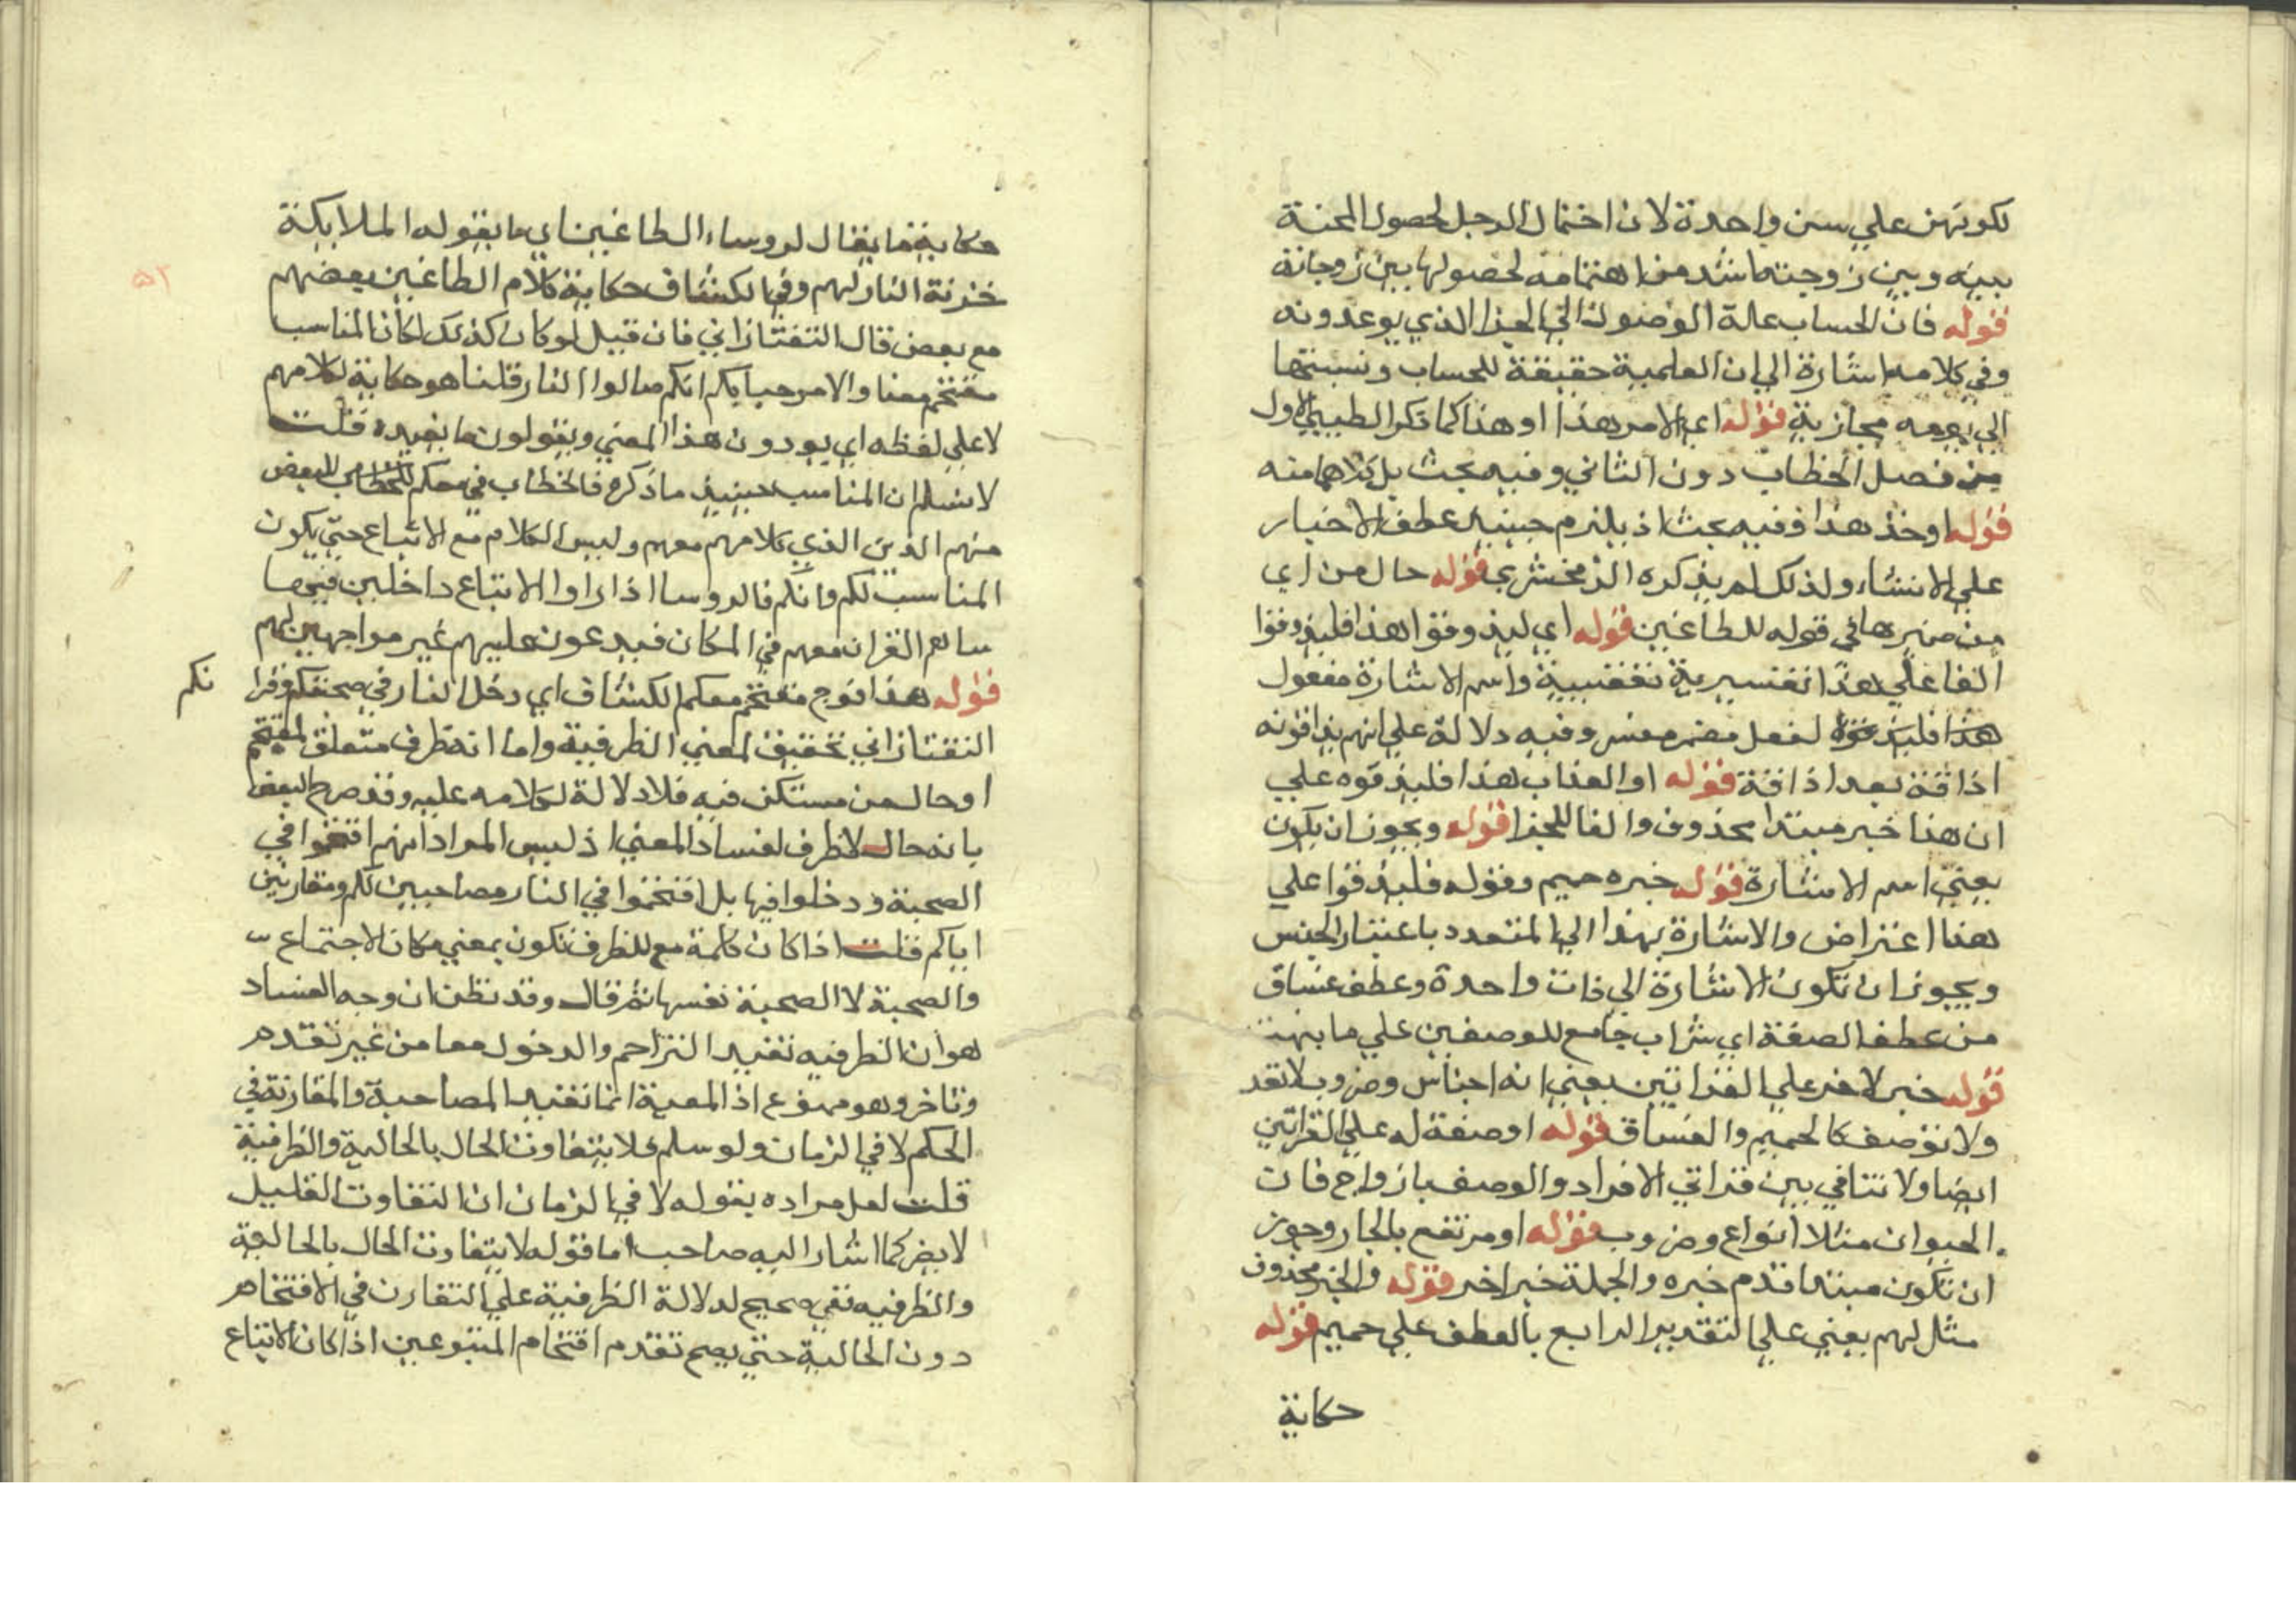 لكونهن علي سن واحدة لان اختمال الرجل لحصول المحنة
بينه وبين زوجته اشد من اهتمامه لحصولها بين زوجاته
قوله فان الحساب علة الوصول الي الجزا الذي يوعدونه
وفي كلامه اشارة الي ان العلمية حقيقة للحساب ونسبتها
الي يومه مجازية قوله اي الامر هذا او هذا كما ذكر الطيبي الاول
من فصل الخطاب دون الثاني وفيه بحث بل كلاهما منه
قوله اوخذ هذا ففيه بحث اذ يلزم حينيذ عطف الاخبار
علي الانشاء ولذلك لم يذكره الزمخشري قوله حال من اي
من ضميرها في قوله للطاغين قوله اي ليذوقوا هذا فليذوقوا
الفا علي هذا تفسيرية تعقيبية واسم الاشارة مفعول
هذا فليذوقوه لفعل مضمر مفسر وفيه دلالة علي انهم يذاقونه
اذاقة بعد اذاقة قوله او العذاب هذا فليذقوه علي
ان هذا خبر مبتدا محذوف والفا للجزا قوله ويجوز ان يكون
يعني اسم الاشارة قوله خبره حميم وقوله فليذقوا علي
هذا اعتراض والاشارة بهذا الي المتعدد باعتبار الجنس
ويجوز ان تكون الاشارة الي ذات واحدة وعطف غساق
من عطف الصفة اي شراب جامع للوصفين علي ما بينه
قوله خبر لاخر علي القراتين يعني انه اجناس وضروب لا تعد
ولا توصف كالحميم والغساق قوله او صفة له علي القراتين
ايضا ولا تنافي بين قراتي الافراد والوصف بازواج فان
الحيوان مثلا انواع وضروب قوله او مرتفع بالجار وجوز
ان تكون مبتدا قدم خبره والجملة خبر اخر قوله والخبر محذوف
مثل لهم يعني علي التقدير الرابع بالعطف علي حميم قوله
حكاية
حكاية ما يقال لروساء الطاغين اي ما يقوله الملايكة
خزنة النار لهم وفي الكشاف حكاية كلام الطاغين بعضهم
مع بعض قال التفتازاني فان قيل لو كان كذلك لكان المناسب
مقتحم معنا والا مرحبا بكم انكم صالوا النار قلنا هو حكاية لكلامهم
لا علي لفظه اي يودون هذا المعني ويقولون ما يفيده قلت
لا نسلم ان المناسب حينيذ ما ذكره فالخطاب في معكم للبعض
منهم الذين الذي كلامهم معهم وليس الكلام مع الاتباع حتي يكون
المناسب لكم وانكم فالروسا اذا راوا الاتباع داخلين فيها
سالهم القران معهم في المكان فيدعون عليهم غير مواجهين لهم
قوله هذا فوج مقتحم معكم الكشاف اي دخل النار في صحبتكم وقرا
نكم
التفتازاني تحقيق لمعني الظرفية واما انه ظرف متعلق لمقتحم
او حال من مستكن فيه فلا دلالة لكلامه عليه وقد صرح البعض
بانه حال لا ظرف لفساد المعني اذ ليس المراد انهم اقتحموا في
الصحبة ودخلوا فيها بل اقتحموا في النار مصاحبين لكم ومقارنين
اياكم قلت اذا كان كلمة مع للظرف تكون بمعني مكان الاجتماع
والصحبة لا الصحبة نفسها ثم قال وقد نظن ان وجه الفساد
هو ان الظرفيه تفيد التزاحم والدخول معا من غير تقدم
وتاخر وهو ممنوع اذ المعية انما تفيد المصاحبة والمقارنة في
الحكم لا في الزمان ولو سلم فلا يتفاوت الحال بالحالية والظرفية
قلت لعل مراده بقوله لا في الزمان ان التفاوت القليل
لا يضر كما اشار اليه صاحب اما قوله لا يتفاوت الحال بالحالية
والظرفيه نفي صحيح لدلالة الظرفية علي التقارن في الاقتحام
دون الحالية حتي يصح تقدم اقتحام المتبوعين اذا كان الاتباع